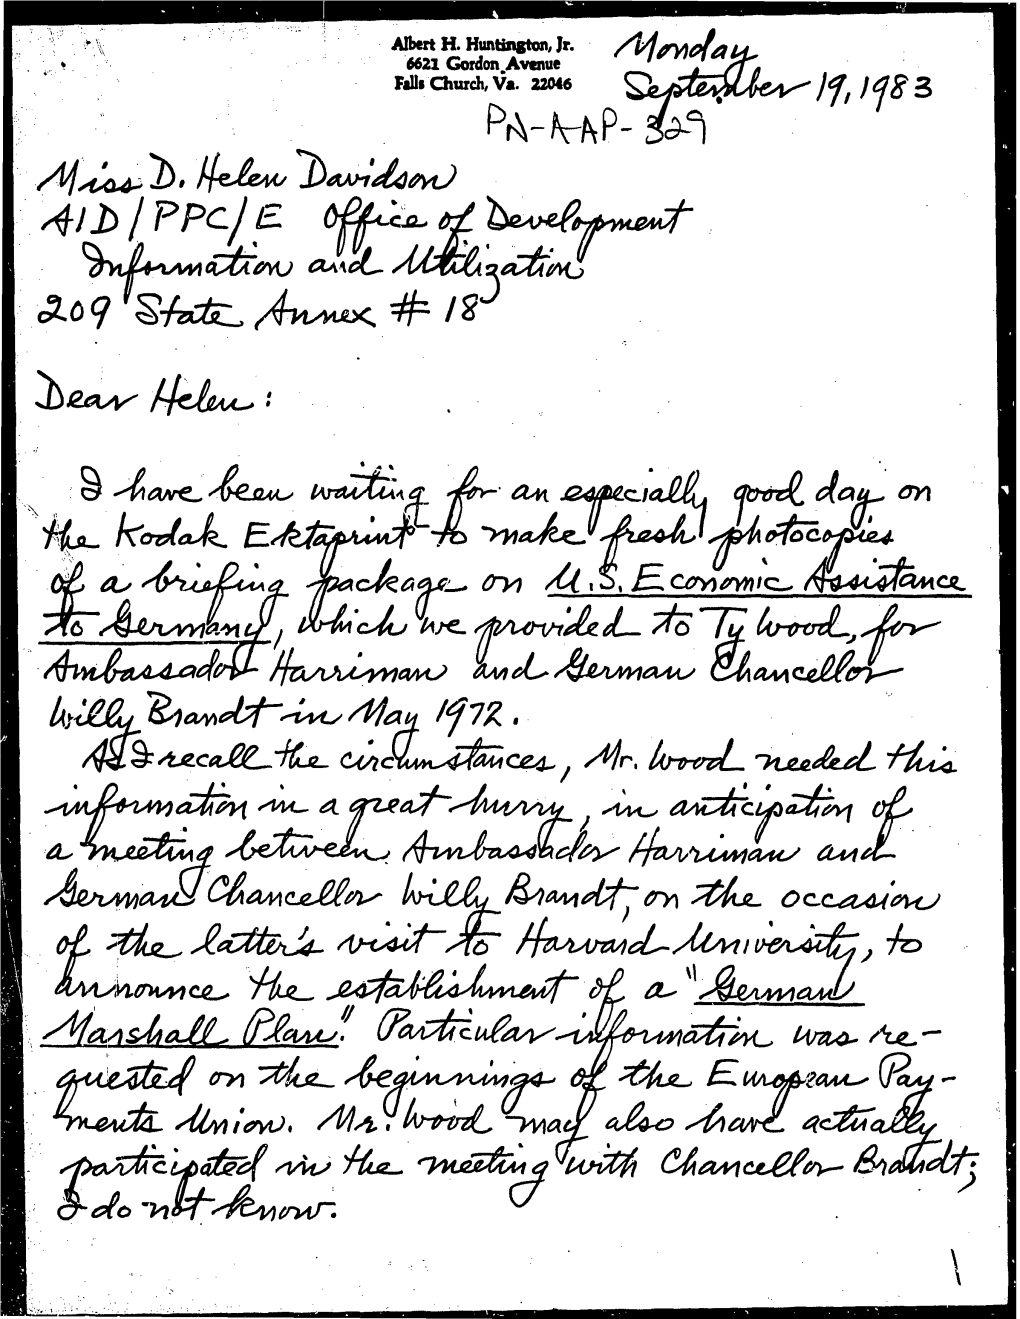 Albert H. Huntington, Jr.
6621 Gordon Avenue
Falls Church, Va. 22046
Monday
September 19, 1983
PN-AAP-329
Miss D. Helen Davidson
AID/PPC/E Office of Development
Information and Utilization
209 State Annex # 18
Dear Helen:
I have been waiting for an especially good day on
the Kodak Ektaprint to make fresh photocopies
of a briefing package on U.S. Economic Assistance
to Germany, which we provided to Ty Wood, for
Ambassador Harriman and German Chancellor
Willy Brandt in May 1972.
As I recall the circumstances, Mr. Wood needed this
information in a great hurry, in anticipation of
a meeting between Ambassador Harriman and
German Chancellor Willy Brandt, on the occasion
of the latter's visit to Harvard University, to
announce the establishment of a "German
Marshall Plan." Particular information was re-
quested on the beginnings of the European Pay-
ments Union. Mr. Wood may also have actually
participated in the meeting with Chancellor Brandt;
I do not know.
1